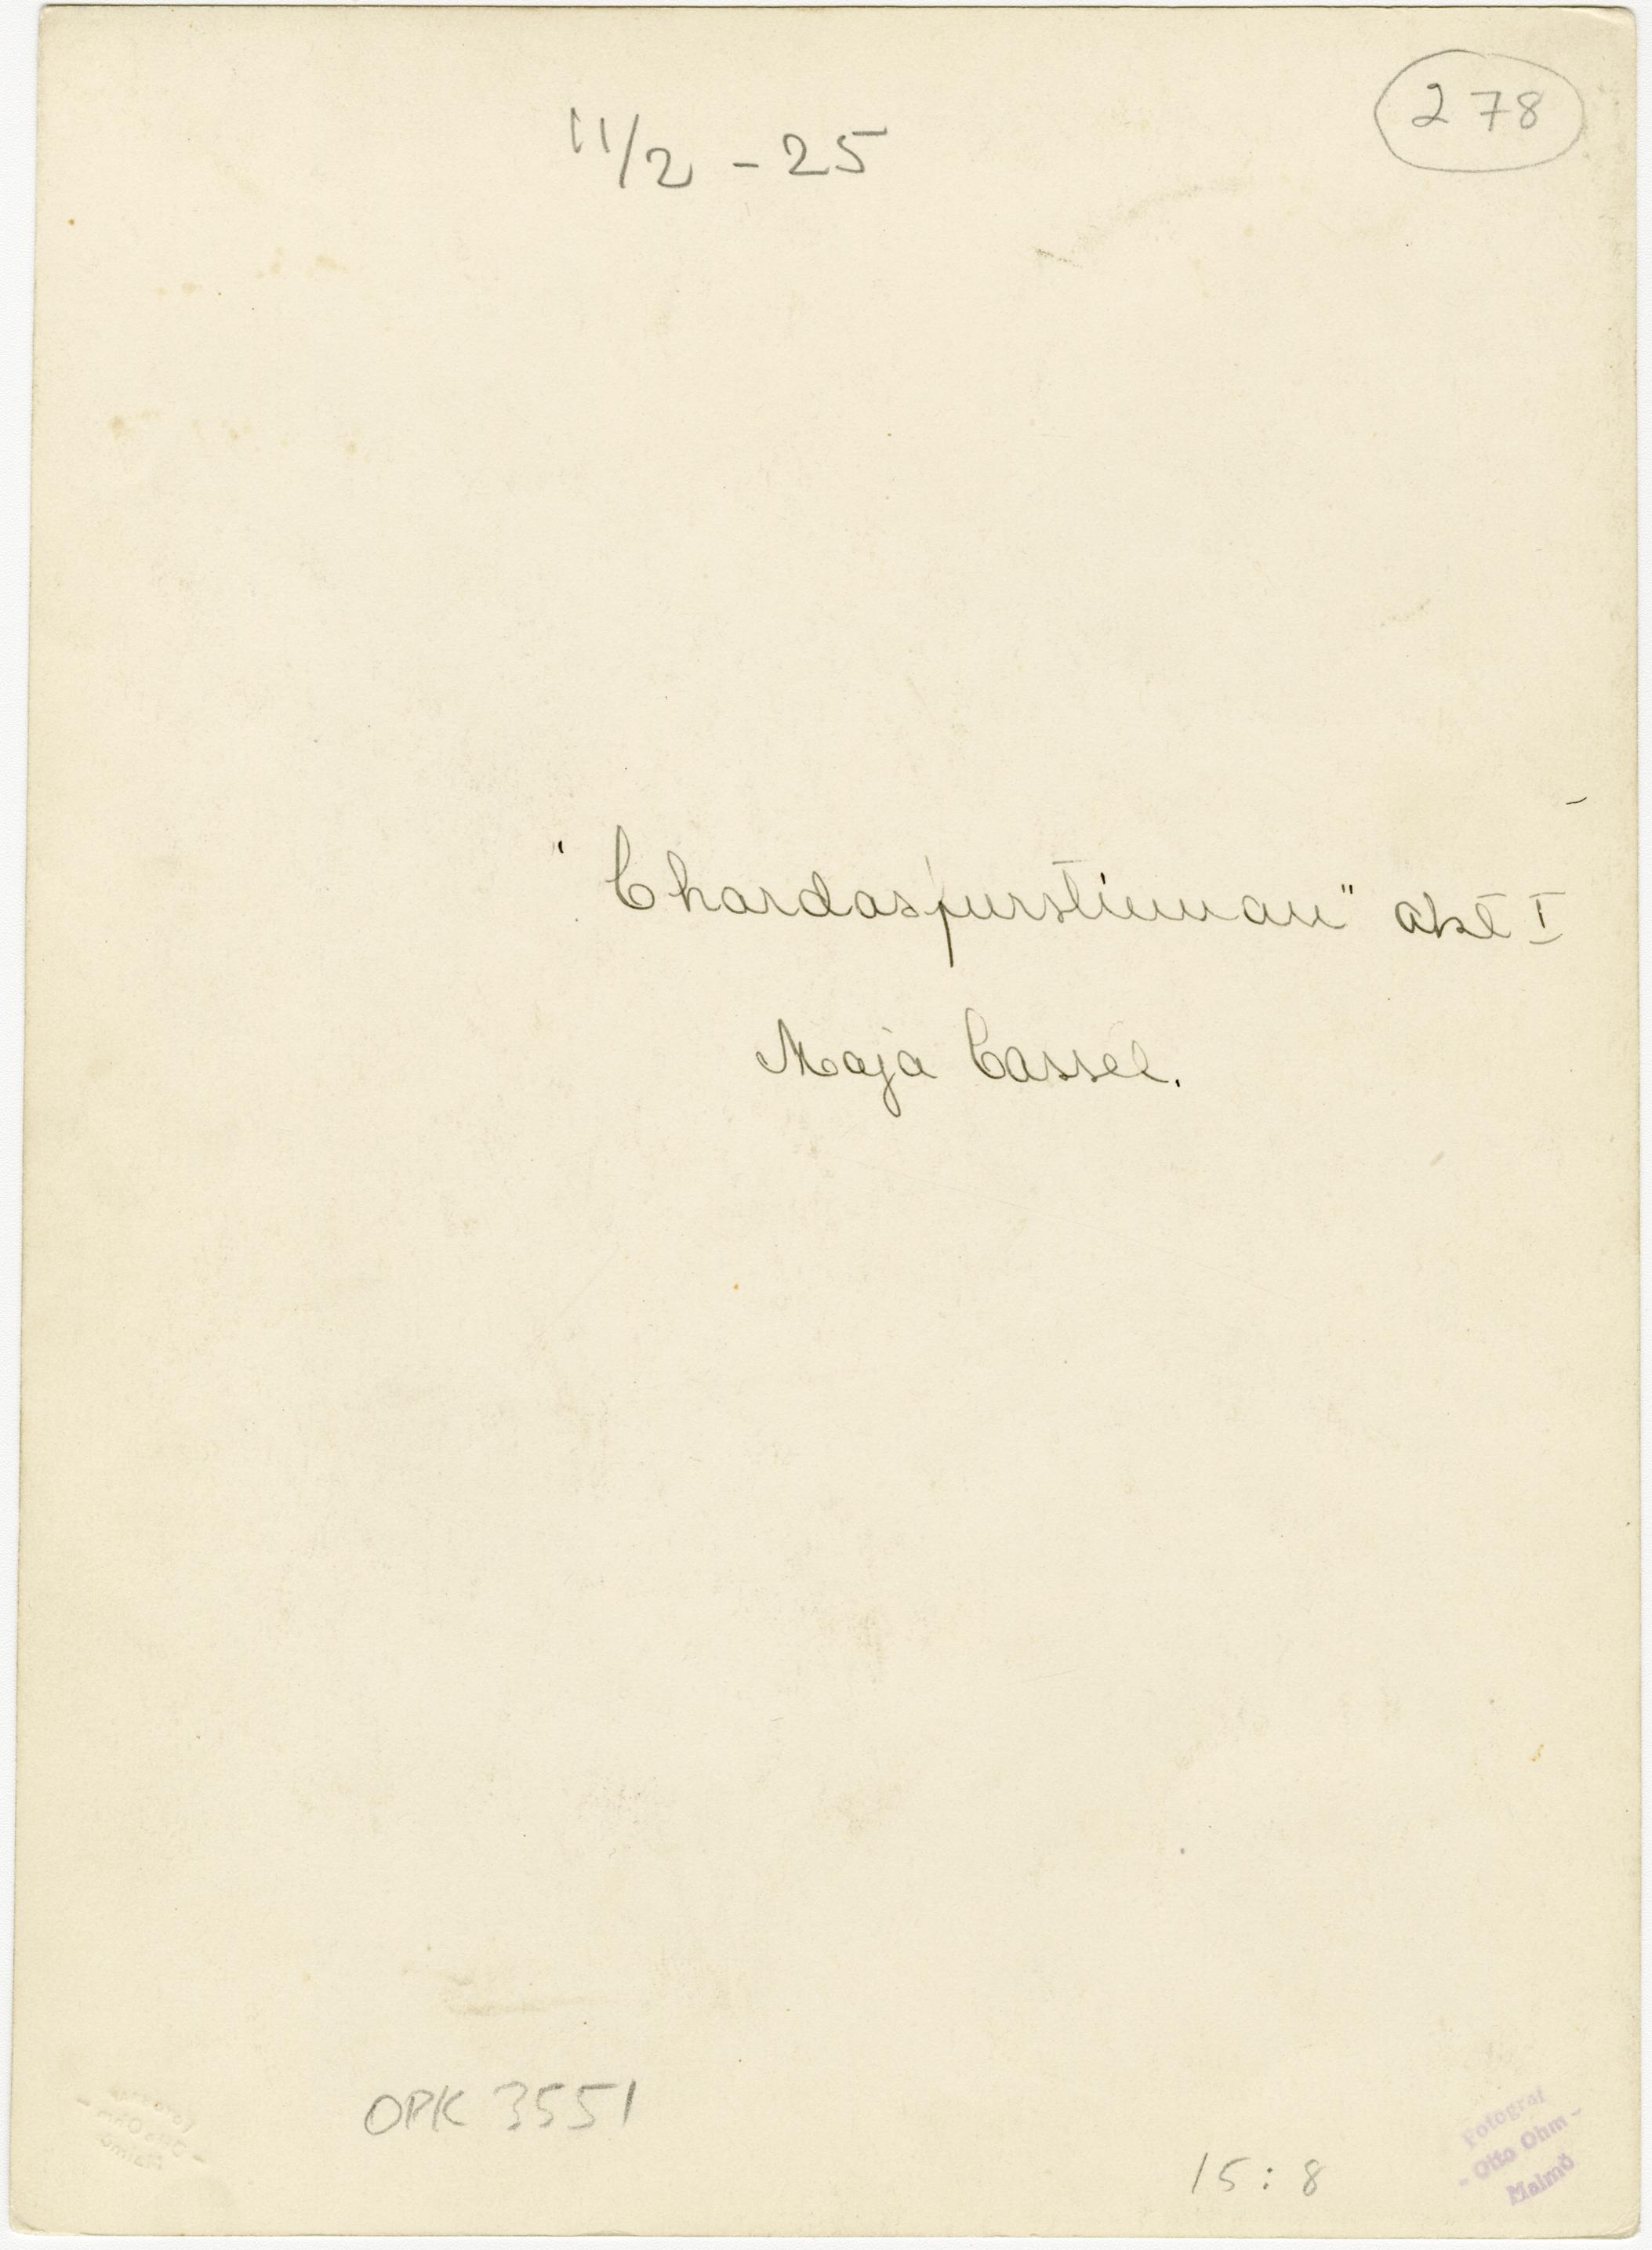 278
11/2 - 25
"Chardasfurstinnan" akt I
Maja Cassel.
OPK 3551
15:8
Fotograf
- Otto Ohm -
Malmö